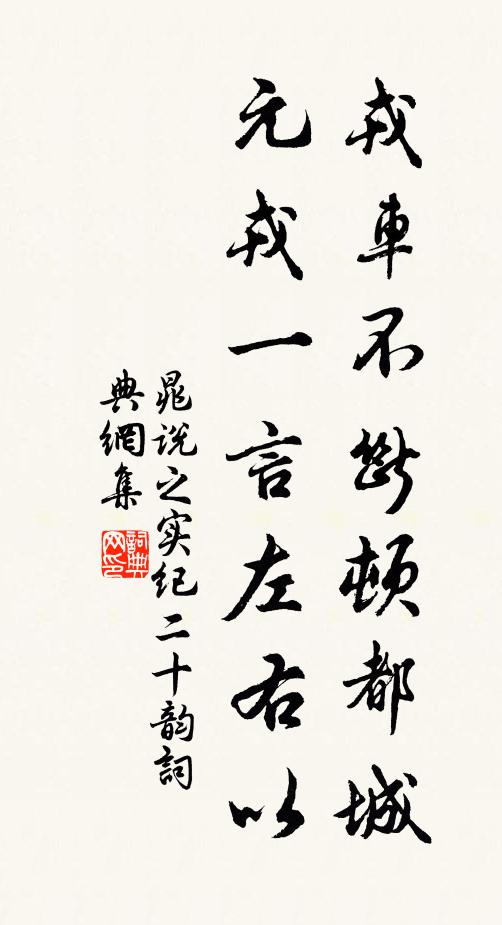 戎車不斷頓都城
元戎一言左右以
晁說之实纪二十韵詞
典網集
詞典网印